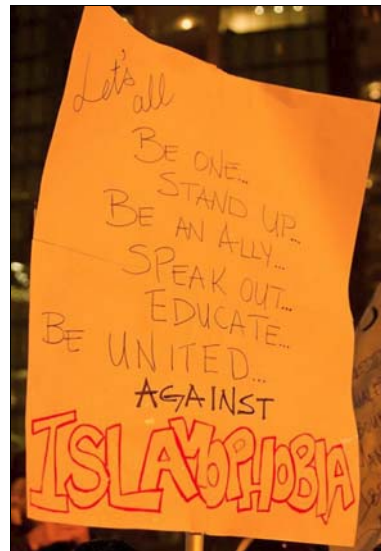 Let's
all
BE ONE...
STAND UP...
BE AN ALLY...
SPEAK OUT...
EDUCATE...
BE UNITED...
AGAINST
ISLAMOPHOBIA